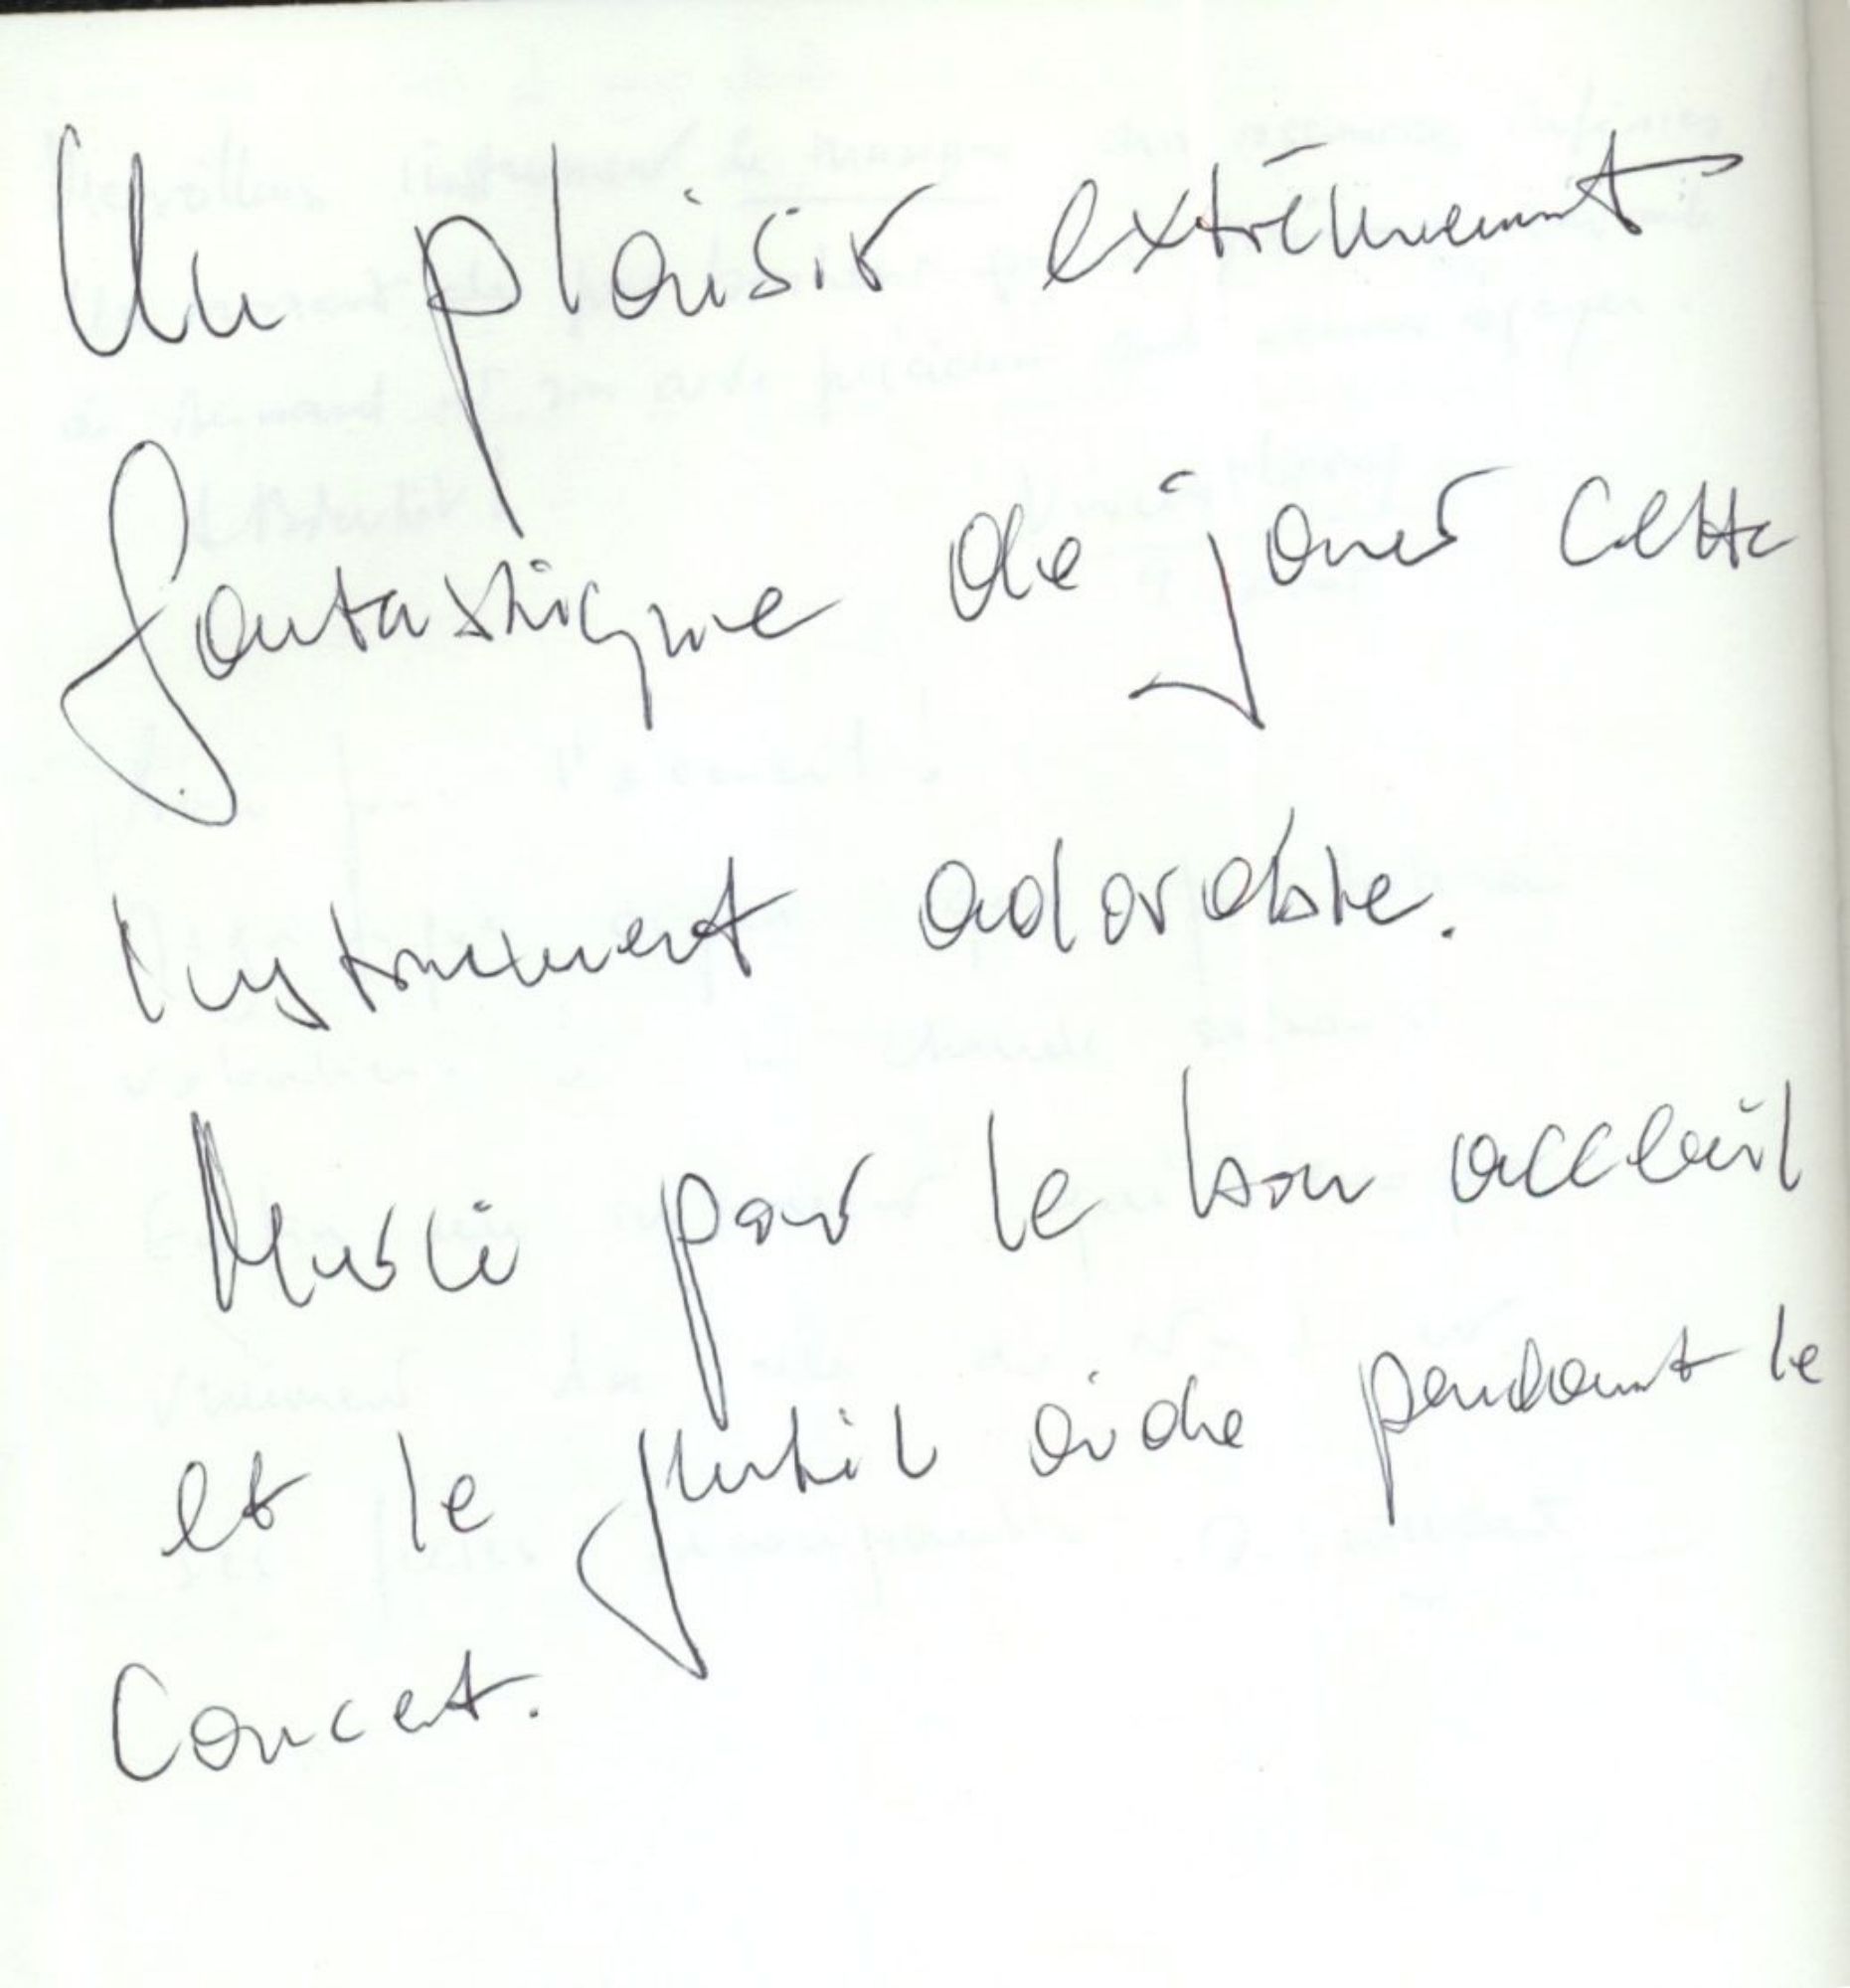 Un plaisir extrêmement
fantastique de jouer cette
instrument adorable.
Merci pour le bon acceuil
et le gentil aide pendant le
Concert.